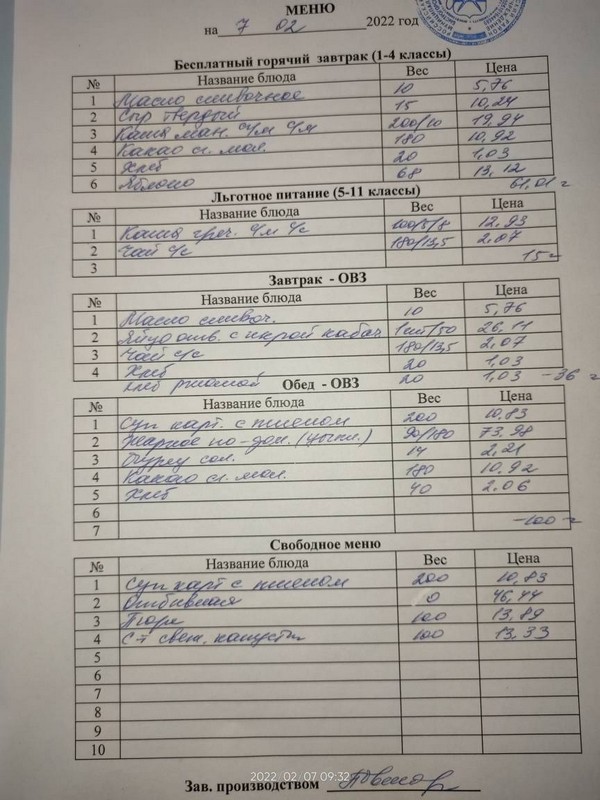 МЕНЮ
на 7 02 2022 год
Бесплатный горячий завтрак (1-4 классы)
№ Название блюда Вес Цена
1 Масло сливочное 10 5,76
2 Сыр твердый 15 10,24
3 Каша ман. с/м с/м 200/10 19,94
4 Какао сг. мол. 180 10,92
5 Хлеб 20 1,03
6 Яблоко 68 13,12
61,01
Льготное питание (5-11 классы)
№ Название блюда Вес Цена
1 Каша греч. с/м с/с 100/5/8 12,93
2 Чай с/с 180/13,5 2,07
3 15
Завтрак - ОВЗ
№ Название блюда Вес Цена
1 Масло сливоч. 10 5,76
2 Яйцо отв. с икрой кабач 1шт/50 26,11
3 Чай с/с 180/13,5 2,07
4 Хлеб 20 1,03
хлеб ржаной 20 1,03 - 36
Обед - ОВЗ
№ Название блюда Вес Цена
1 Суп карт. с пшеном 200 10,83
2 Жаркое по-дом. (цыпл.) 90/180 73.98
3 Огурец сол. 14 2,21
4 Какао сг. мол. 180 10,92
5 Хлеб 40 2.06
6
7 -100
Свободное меню
№ Название блюда Вес Цена
1 Суп карт с пшеном 200 10,83
2 Отбивная 46,44
3 Пюре 100 13,89
4 С-т свеж. капусты 100 13,33
5
6
7
8
9
10
Зав. производством
2022. 02. 07 09:32